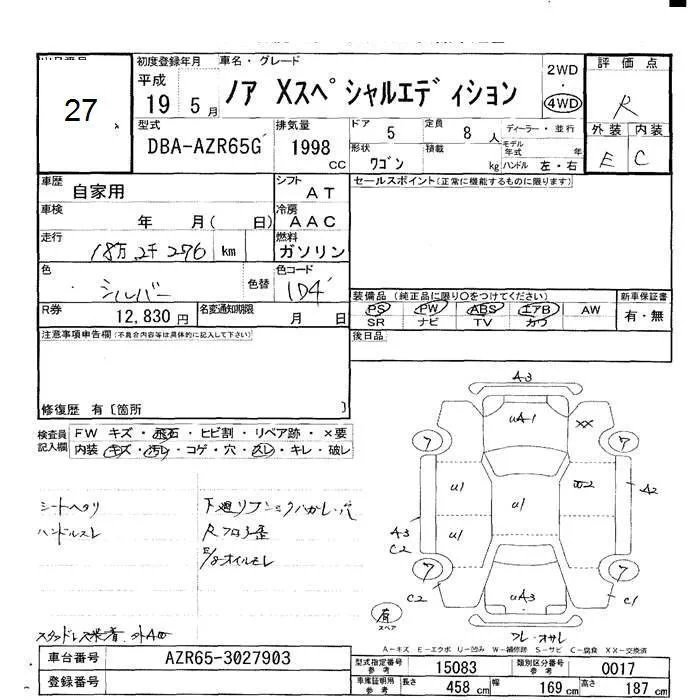 27
初度登録年月 車名・グレード
平成 19 5 月 ノア Xスペシャルエディション
2WD ・ 4WD
評価点
R
外装 内装
E C
型式 排気量 ドア 定員 ディーラー・並行
DBA-AZR65G 1998 cc 5 8 人
形状 積載 モデル年式 年
ワゴン kg ハンドル 左・右
車歴 自家用 シフト AT
セールスポイント(正常に機能するものに限ります)
車検 年 月( 日) 冷房 AAC
走行 18万2千276 km 燃料 ガソリン
色 シルバー 色替 色コード 1D4
装備品(純正品に限り○をつけてください) 新車保証書
PS PW ABS エアB AW 有・無
SR ナビ TV カワ
R券 12,830円 名変通知期限 月 日
後日品
注意事項申告欄(不具合内容等は具体的に記入して下さい)
修復歴 有〔箇所 〕
検査員記入欄 FW キズ・飛石・ヒビ割・リペア跡・×要
内装・キズ・汚レ・コゲ・穴・スレ・キレ・破レ
シートヘタリ
ハンドルスレ
Rフロア歪
E/gオイルモレ
A3
uA1 XX
ワ ワ
u1 A2
u1
A3 C2 u1
ワ ワ
C2 uA3 C1
有
スペア
A-キズ E-エクボ U-凹み W-補修跡 S-サビ C-腐食 XX-交換済
車台番号 AZR65-3027903
登録番号
型式指定番号 参考 15083 類別区分番号 参考 0017
車庫証明用 参考 長さ 458 cm 幅 169 cm 高さ 187 cm